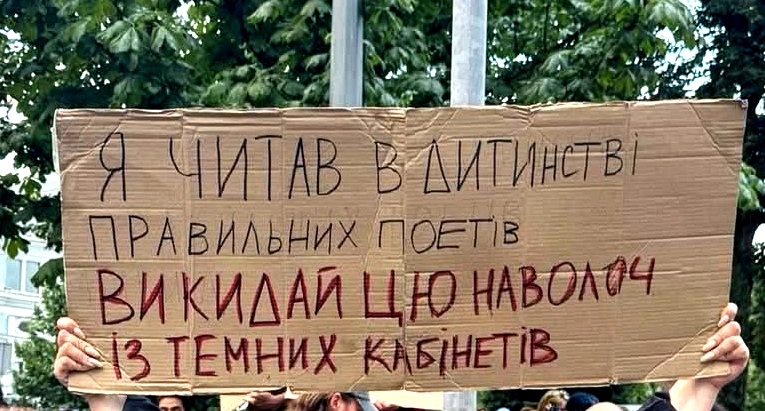 Я ЧИТАВ В ДИТИНСТВІ
ПРАВИЛЬНИХ ПОЕТІВ
ВИКИДАЙ ЦЮ НАВОЛОЧ
ІЗ ТЕМНИХ КАБІНЕТІВ